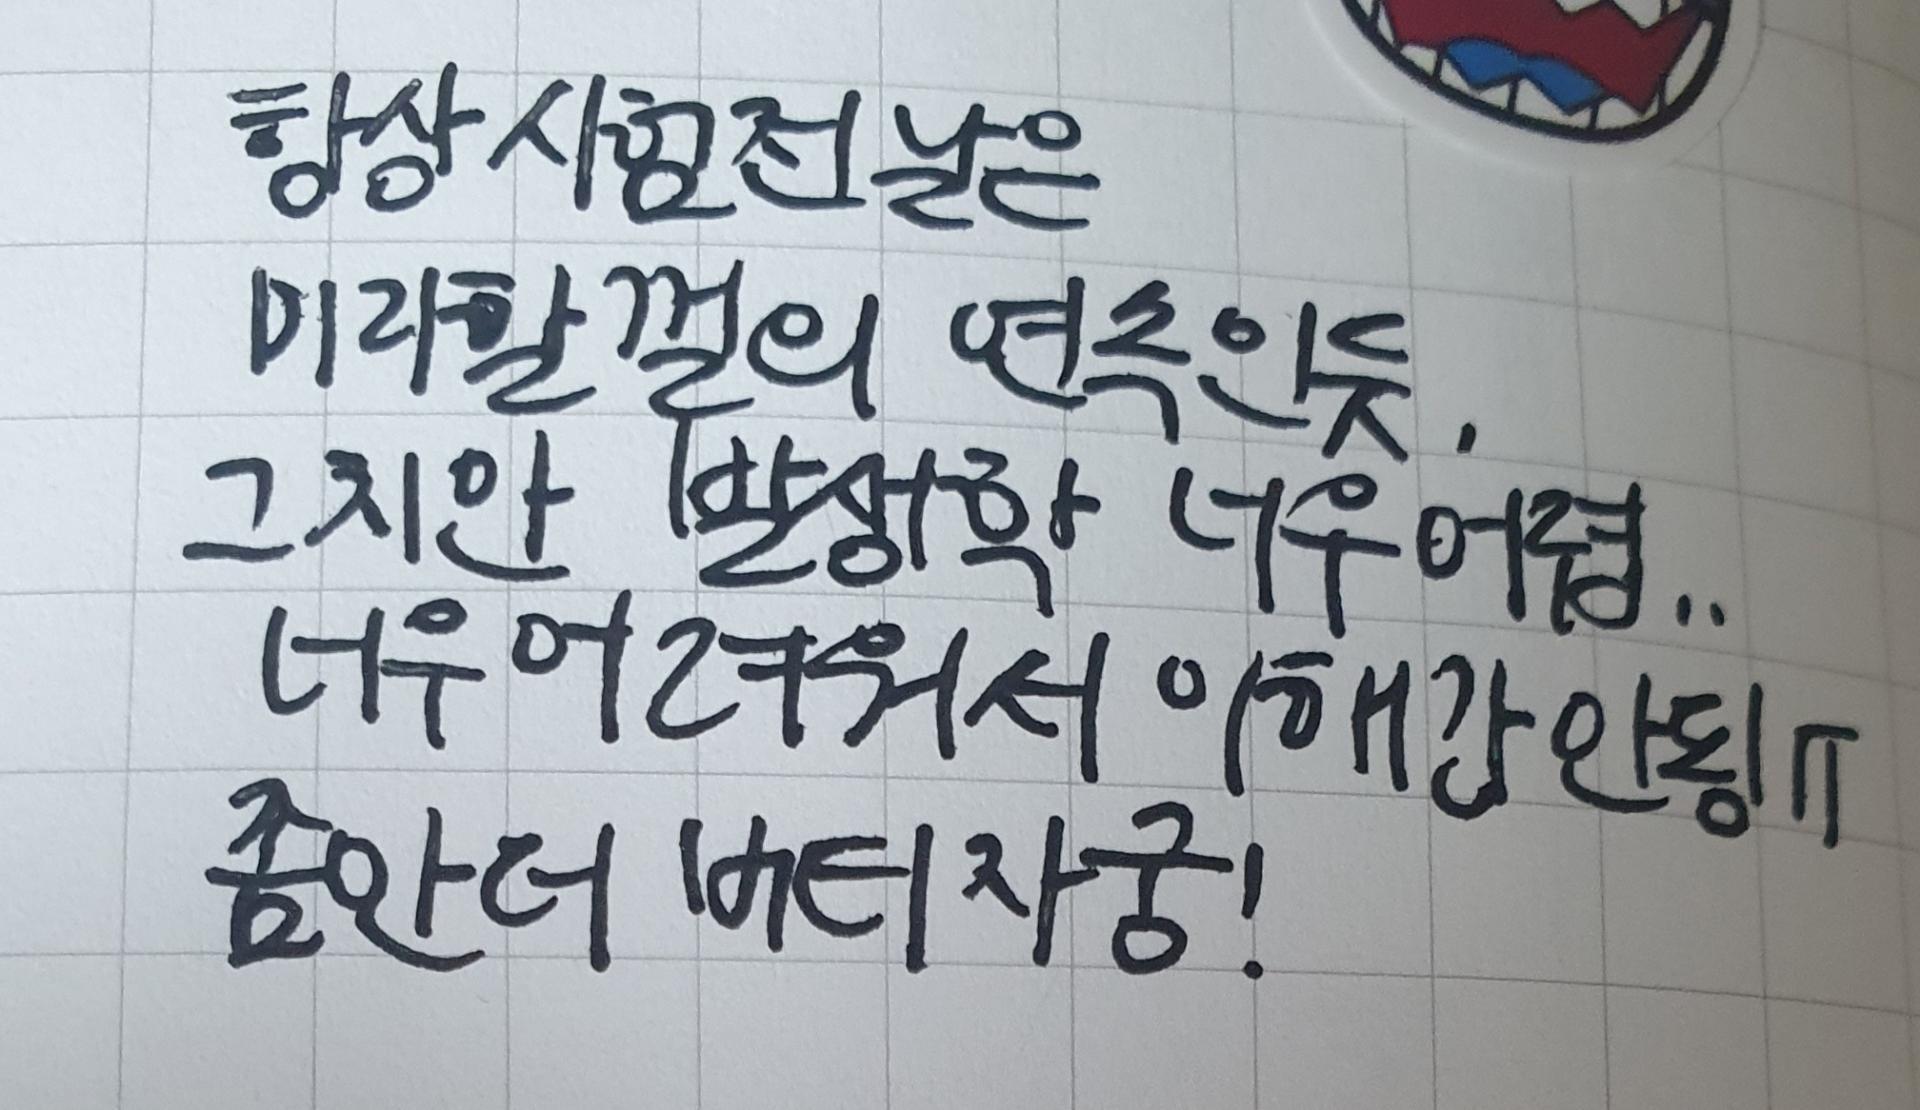 항상 시험전날은
미리할껄의 연속인듯,
그치만 발생학 너무 어렵..
너무 어려워서 이해갑 안됭ㅠ
좀만 더 버티자궁!